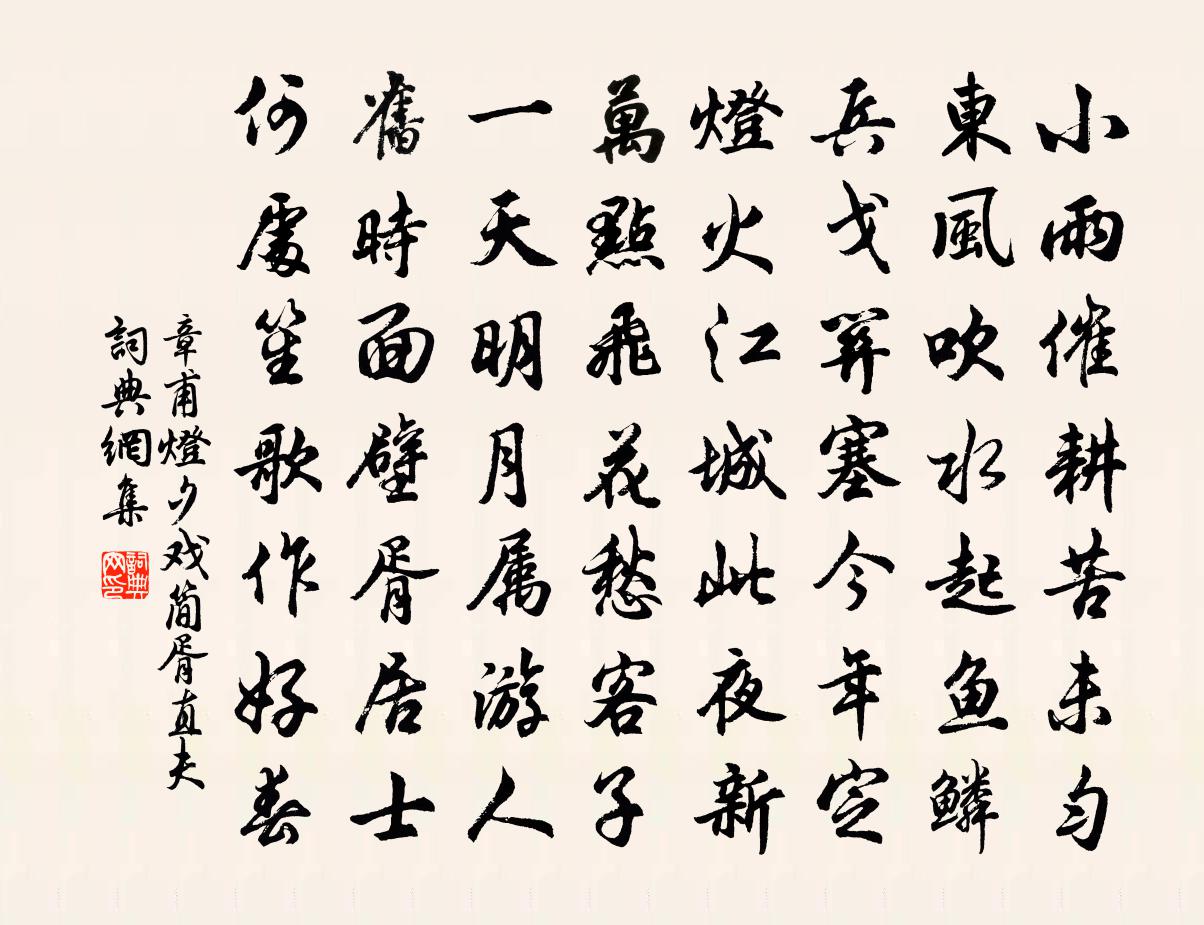 小雨催耕苦未匀
東風吹水起鱼鳞
兵戈関塞今年定
燈火江城此夜新
萬點飛花愁客子
一天明月属游人
舊時面壁胥居士
何處笙歌作好春
章甫燈夕戏簡胥直夫
詞典網集
詞典网印